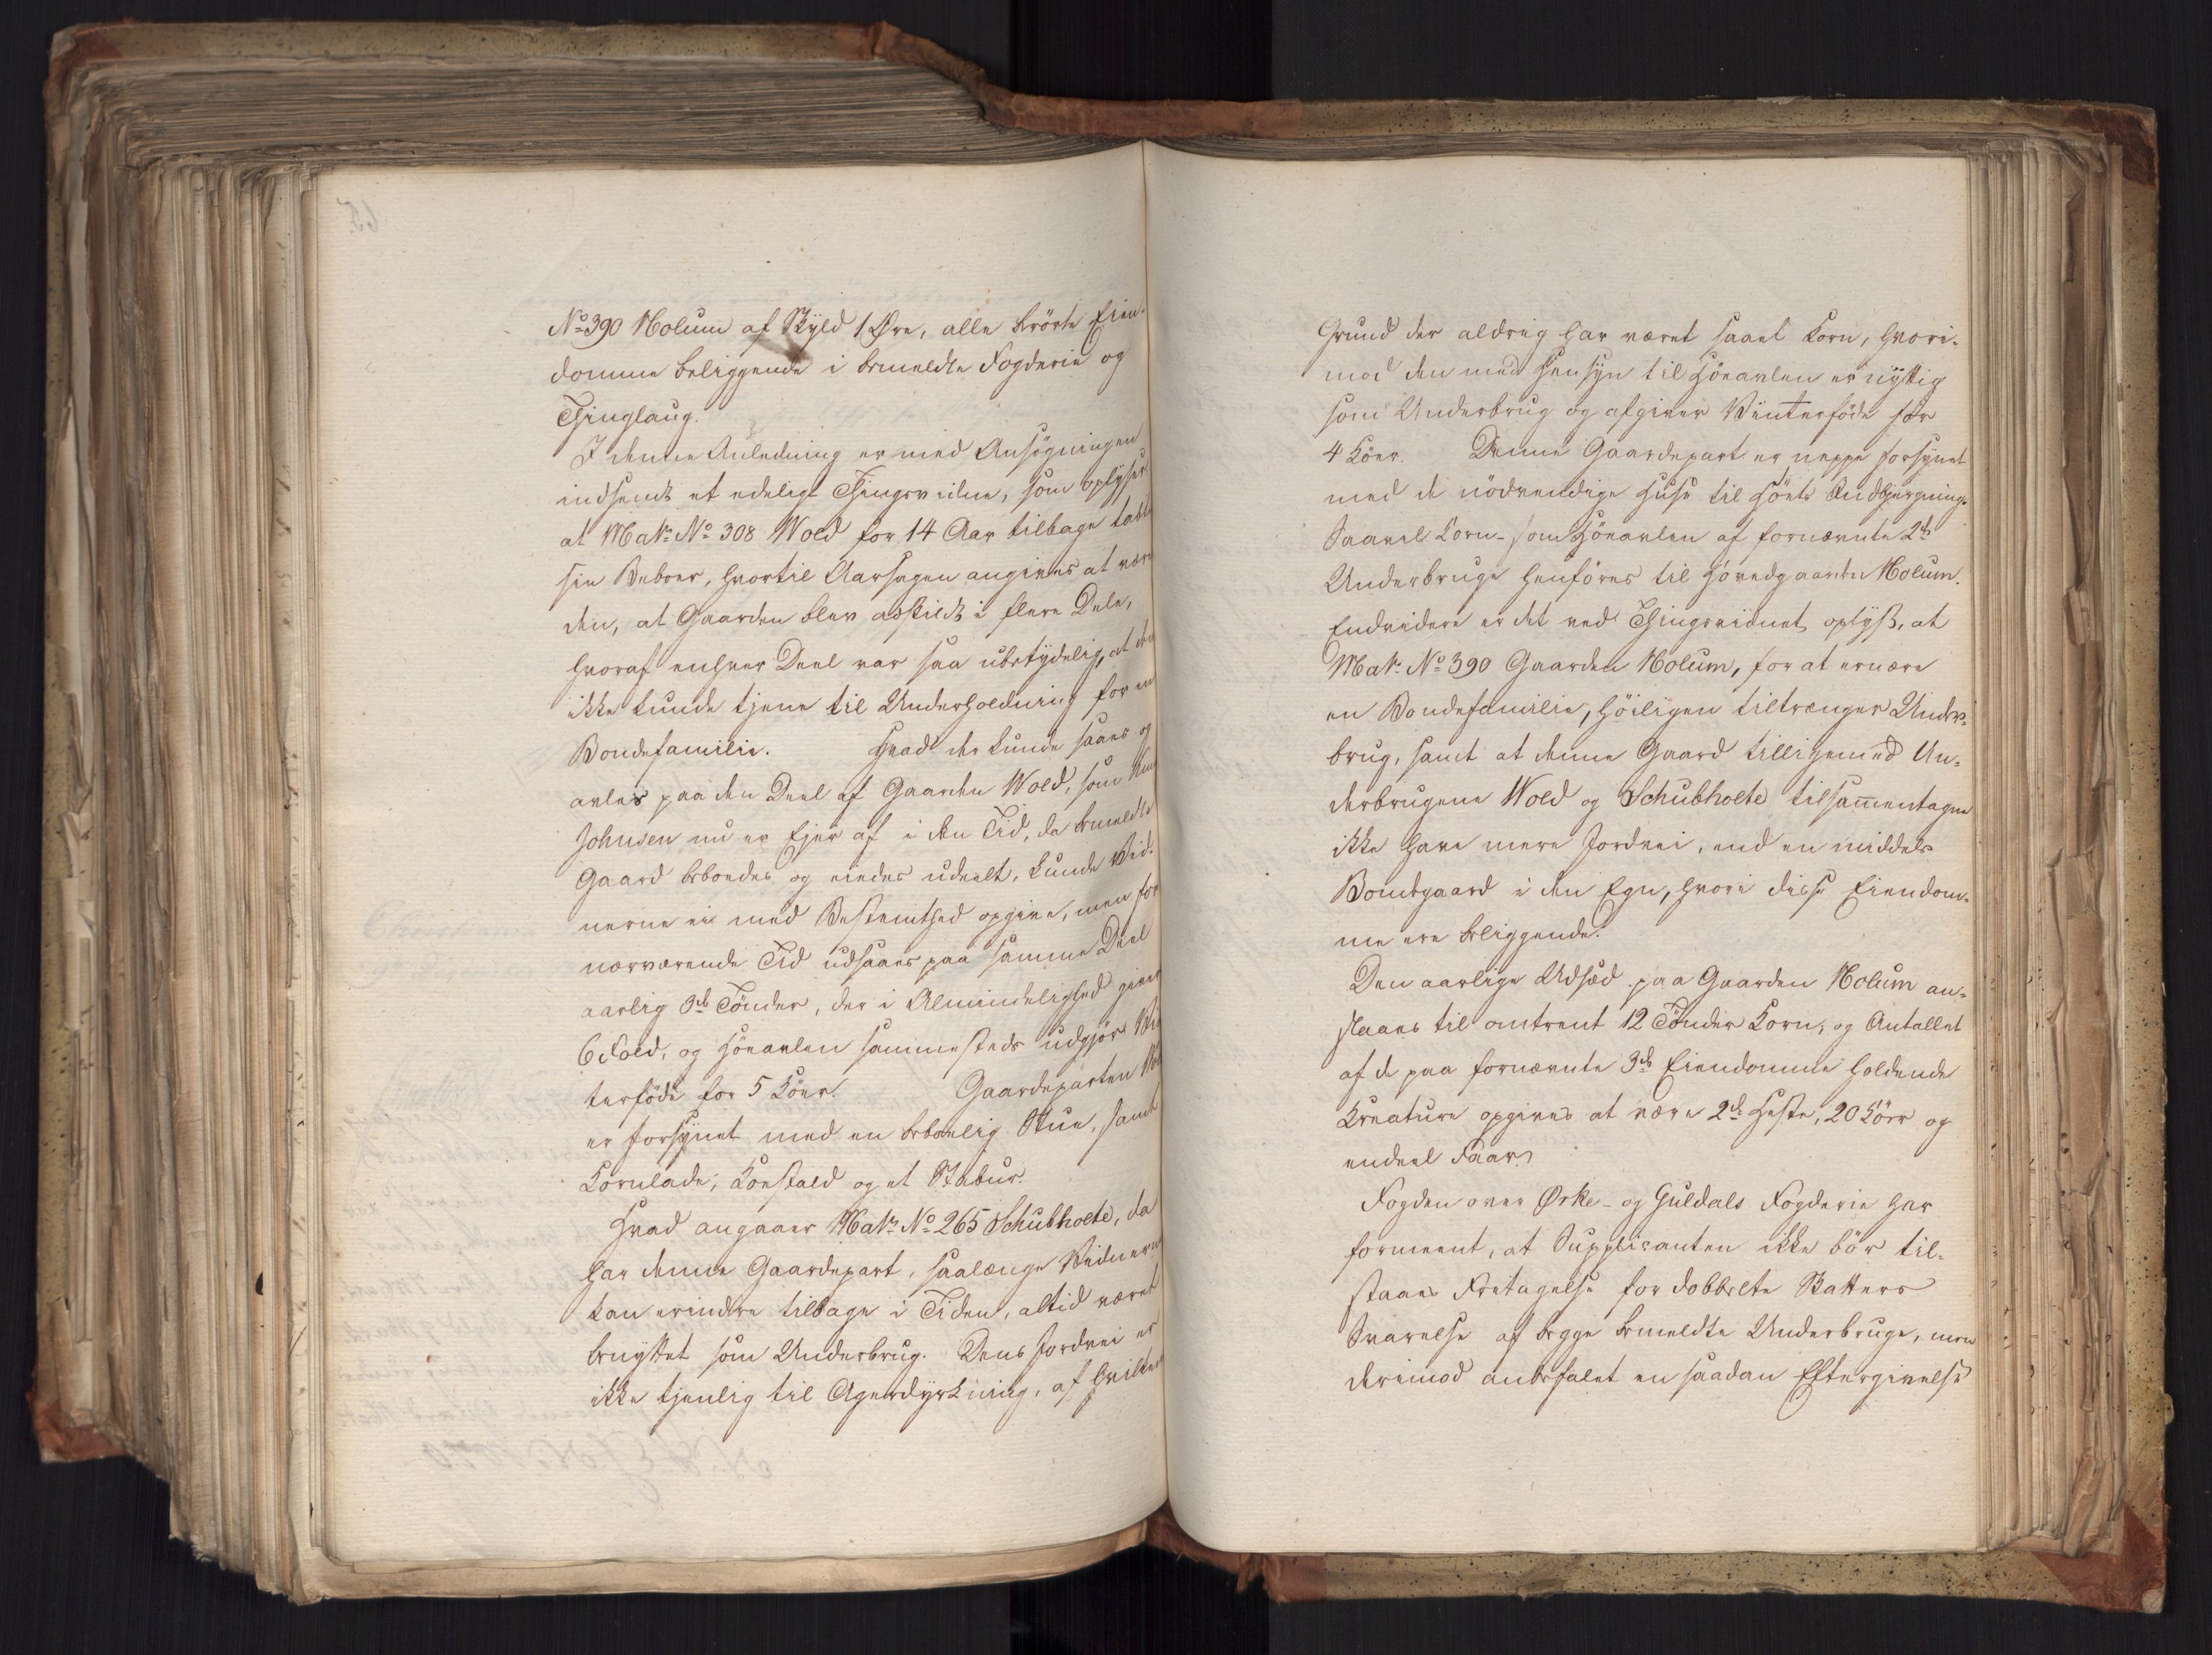 No 390 Holum af Skyld 1 Øre, alle brørte Eien-
domme beliggende i bemeldte Fogderie og
Thinglaug.
I denne Anledning er med Ansøgningen
indsendt et edeligt Thingsvidne, som oplyser
at Matr: No 308 Wold for 14 Aar tilbage tabte
sin Beboer, hvortil Aarsagen angives at være
den, at Gaarden blev adskildt i flere Dele,
hvoraf enhver Deel var saa ubetydelig, at den
ikke kunde tjene til Underholdning for en
Bondefamilie. Hvad der kunde saaes og
avles paa den Deel af Gaarden Wold, som
Johnsen nu er Ejer af i den Tid, da bemeldte
Gaard beboedes og eiedes udeelt, kunde Vid-
nerne ei med Bestemthed opgive, men for
nærværende Tid udsaaes paa samme Deel
aarlig 3de Tønder, der i Almindelighed giver
6 Fold, og Høeavlen sammesteds udgjør Vin
terføde for 5 Køer. Gaardeparten
er forsynet med en beboelig Stue, samt
Kornlade, Koestald og et Stabur.
Hvad angaaer Matr: No 265 Schubholte, da
har denne Gaardepart, saalænge Vidnerne
kan erindre tilbage i Tiden, altid været
benyttet som Underbrug. Dens Jordvei er
ikke tjenlig til Agerdyrkning, af hvilken
Grund der aldrig har været saaet Korn, hvori-
mod den med Hensyn til Høeavlen er nyttig
som Underbrug og afgiver Vinterføde for
4 Køer. Denne Gaardepart er neppe forsynet
med de nødvendige Huse til Høets Indbjergning.
Saavel Korn- som Høeavlen af fornævnte 2de
Underbruge henføres til Hovedgaarden Holum.
Endvidere er det ved Thingsvidnet oplyst, at
Matr: No 390 Gaarden Holum, for at ernære
en Bondefamilie, høiligen tiltrænger Under-
brug, samt at denne Gaard tilligemed Un-
derbrugene Wold og Schubholte tilsammentagne
ikke have mere Jordvei, end en middels
Bondegaard i den Egn, hvori disse Eiendom-
me ere beliggende.
Den aarlige Udsæd paa Gaarden Holum an-
slaaes til omtrent 12 Tønder Korn, og Antallet
af de paa fornævnte 3de Eiendomme holdende
Kreature opgives at være 2de Heste, 20 Køer og
endeel Faar.
Fogden over Ørke- og Guldals Fogderie har
formeent, at Supplicanten ikke bør til-
staaes Fritagelse for dobbelte Skatters
Svarelse af begge bemeldte Underbruge, men
derimod anbefalet en saadan Eftergivelse